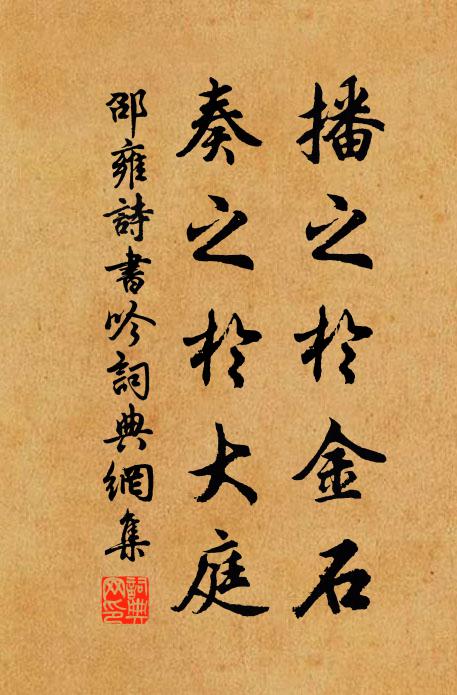 播之於金石
奏之於大庭
邵雍詩書吟詞典網集
詞典
网印